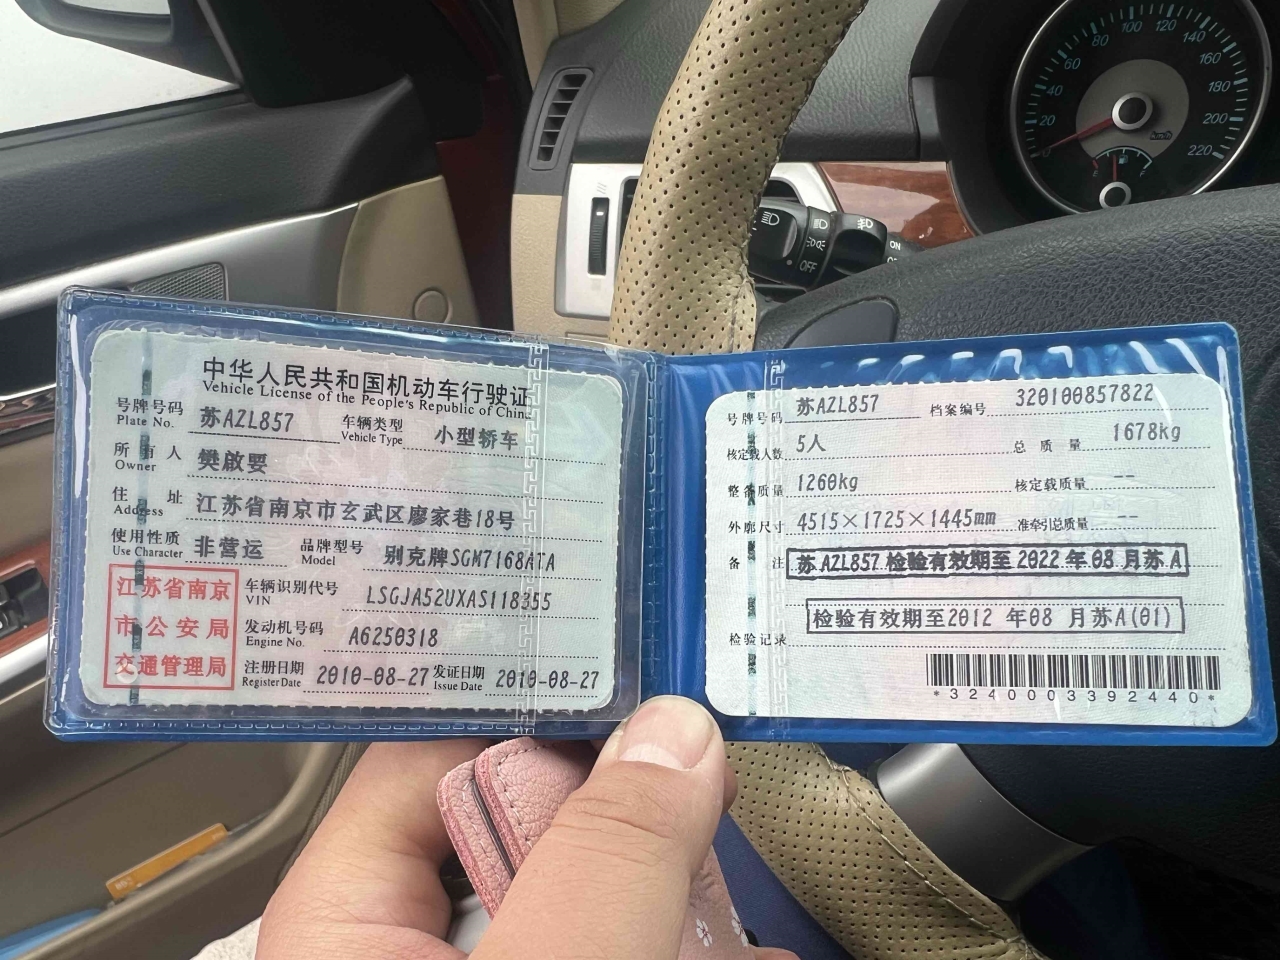 中华人民共和国机动车行驶证
Vehicle License of the People's Republic of China
号牌号码 苏AZL857 车辆类型 小型轿车
Plate No. Vehicle Type
所有人 樊啟婴
Owner
住址 江苏省南京市玄武区廖家巷18号
Address
使用性质 非营运 品牌型号 别克牌SGM7168ATA
Use Character Model
江苏省南京
市公安局
交通管理局
车辆识别代号 LSGJA52UXAS118355
VIN
发动机号码 A6250318
Engine No.
注册日期 2010-08-27 发证日期 2010-08-27
Register Date Issue Date
号牌号码 苏AZL857 档案编号 320100857822
核定载人数 5人 总质量 1678kg
整备质量 1260kg 核定载质量 --
外廓尺寸 4515×1725×1445mm 准牵引总质量 --
备注 苏AZL857 检验有效期至 2022 年 08 月苏 A
检验有效期至2012 年08 月苏A(01)
检验记录
*3240003392440*
0 20 40 60 80 100 120 140 160 180 200 220
km/h
ON
OFF